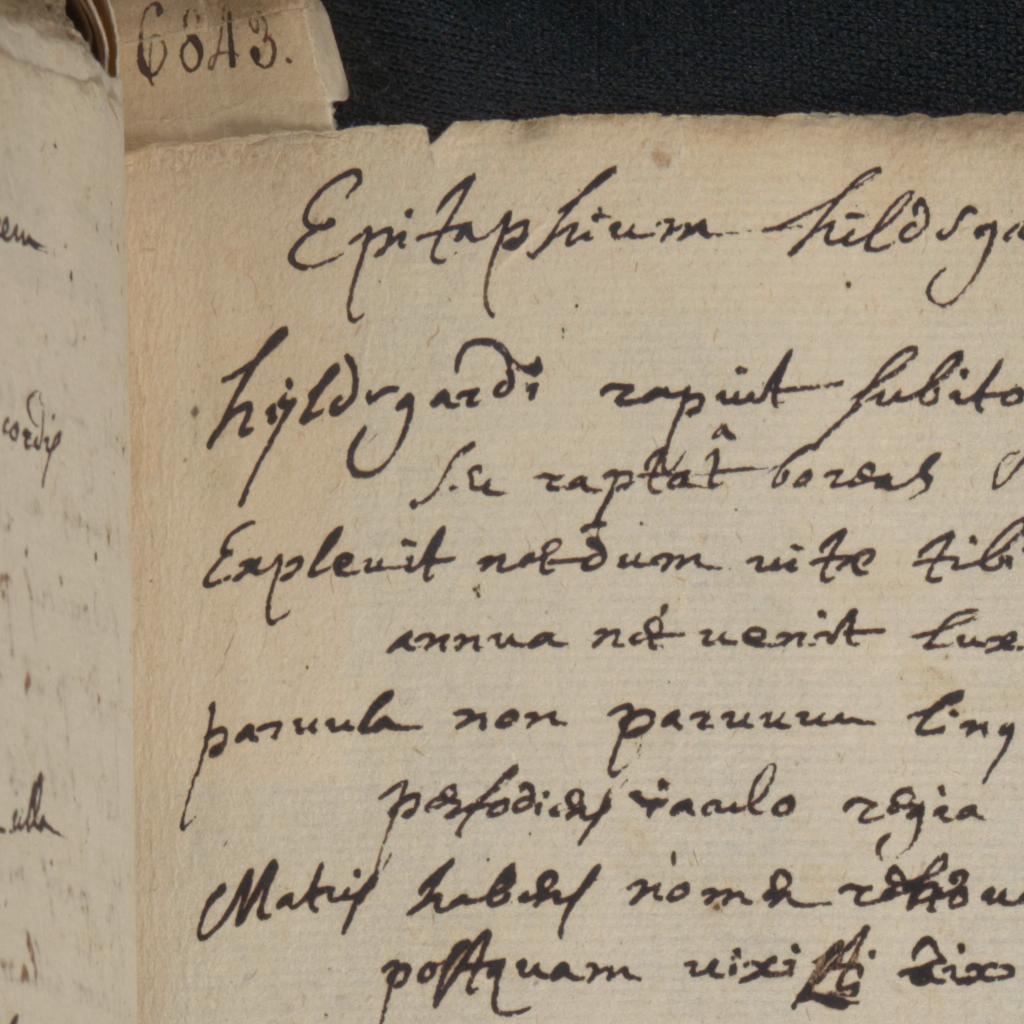 6843.
Epitaphium hildega
hyldegardi rapuit subito
seu raptat boreas
Expleuit necdum vitæ tibi
annua nec uenit lux
paruula non paruum linq
perfodiens iaculo regia
Matris habens nomen
postquam uixisti dix
ulla
cordis